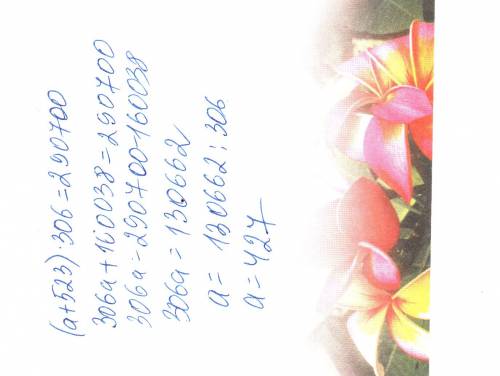 (a+523)·306=290700
306a+160038=290700
306a=290700-160038
306a=130662
a=130662:306
a=427